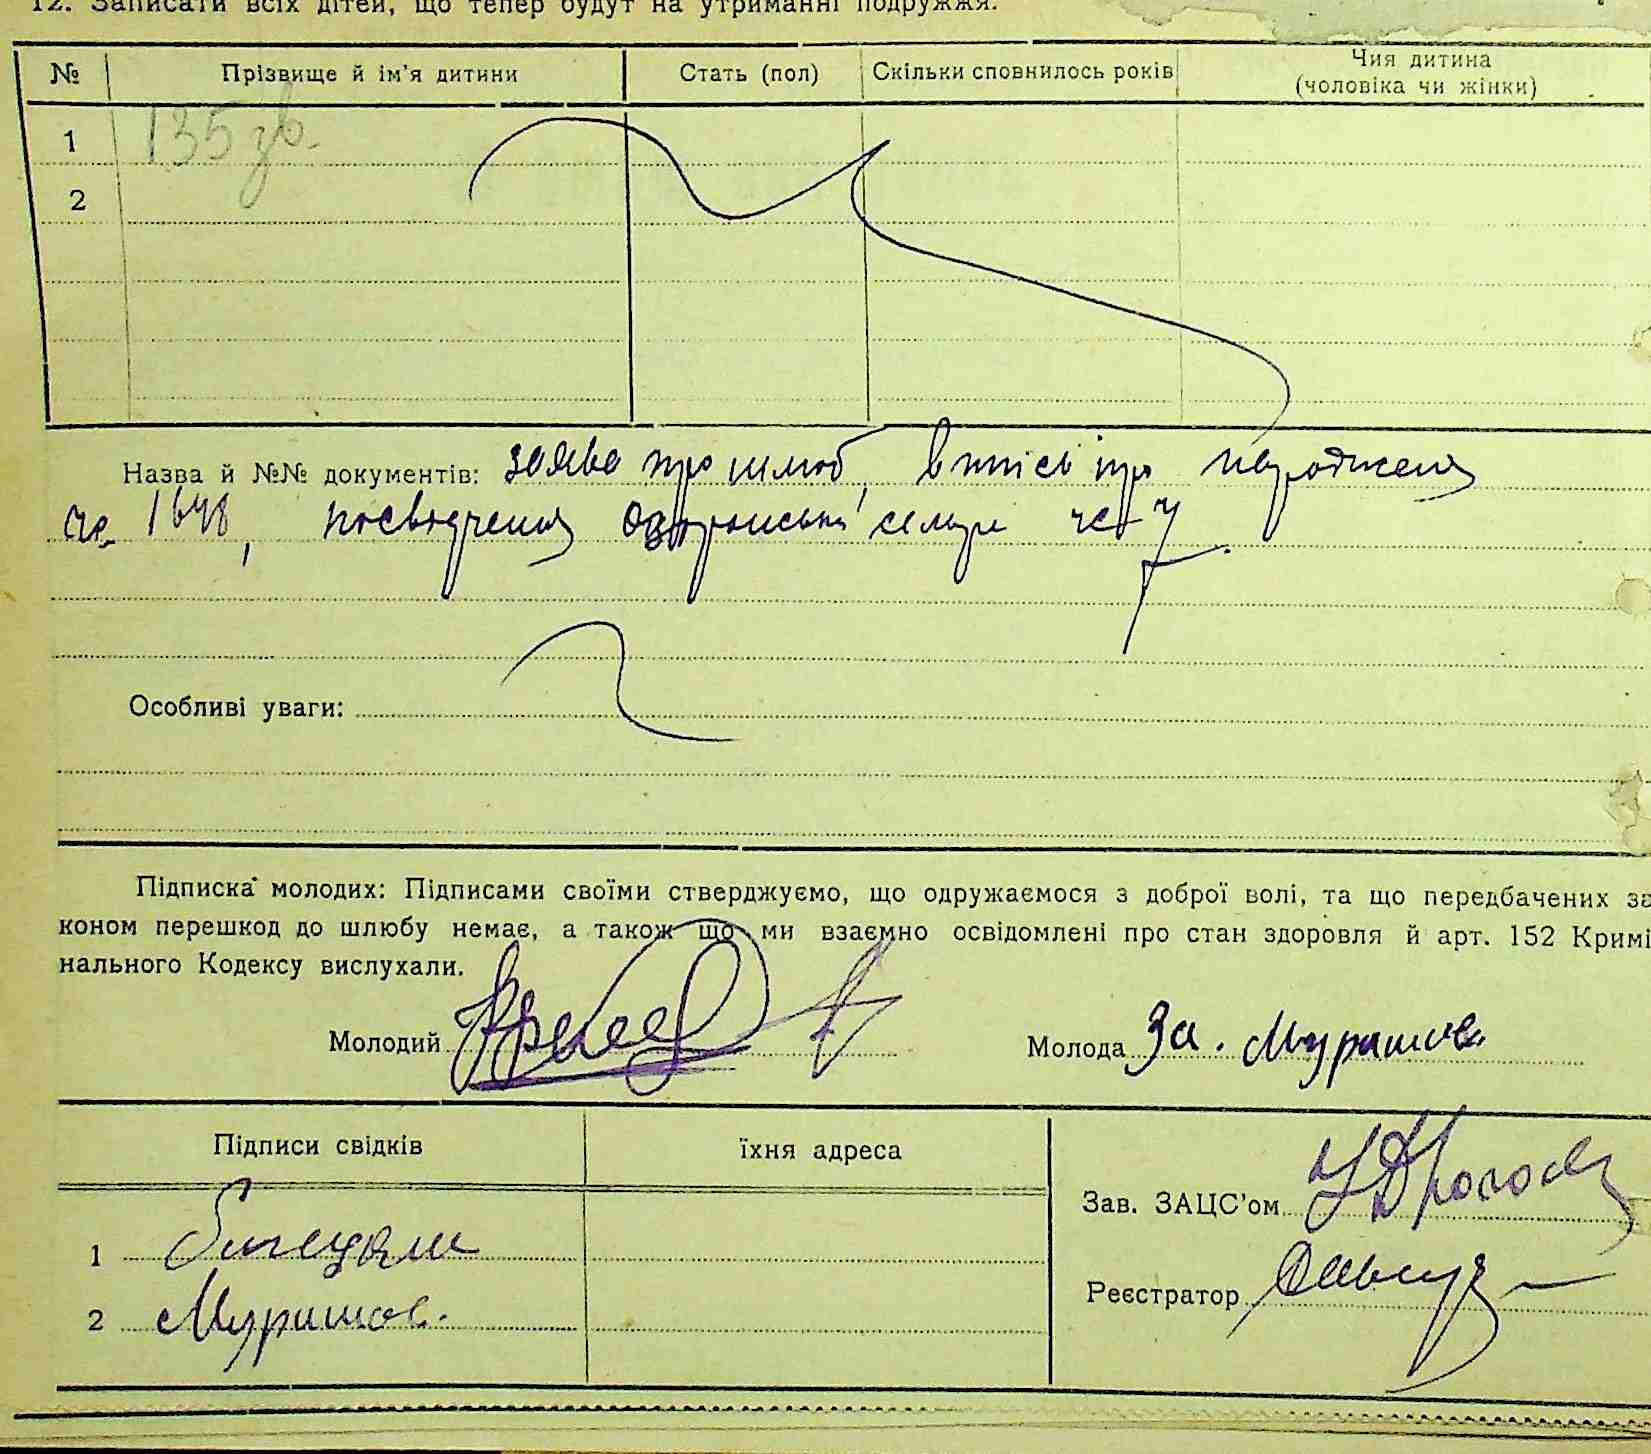 12. Записати всіх дітей, що тепер будут на утриманні подружжя.
№ Прізвище й ім'я дитини Стать (пол) Скільки сповнилось років Чия дитина
(чоловіка чи жінки)
135 зв.
1
2
Назва й №№ документів: заява про шлюб, впись про народження
ч. 1648, посвідчення сельради ч. 7
Особливі уваги:
Підписка молодих: Підписами своїми стверджуємо, що одружаємося з доброї волі, та що передбачених за
коном перешкод до шлюбу немає, а також що ми взаємно освідомлені про стан здоровля й арт. 152 Кримі
нального Кодексу вислухали.
Молодий Молода За. Мурашов
Підписи свідків їхня адреса
Зав. ЗАЦС'ом
1
Реєстратор
2 Мурашов.